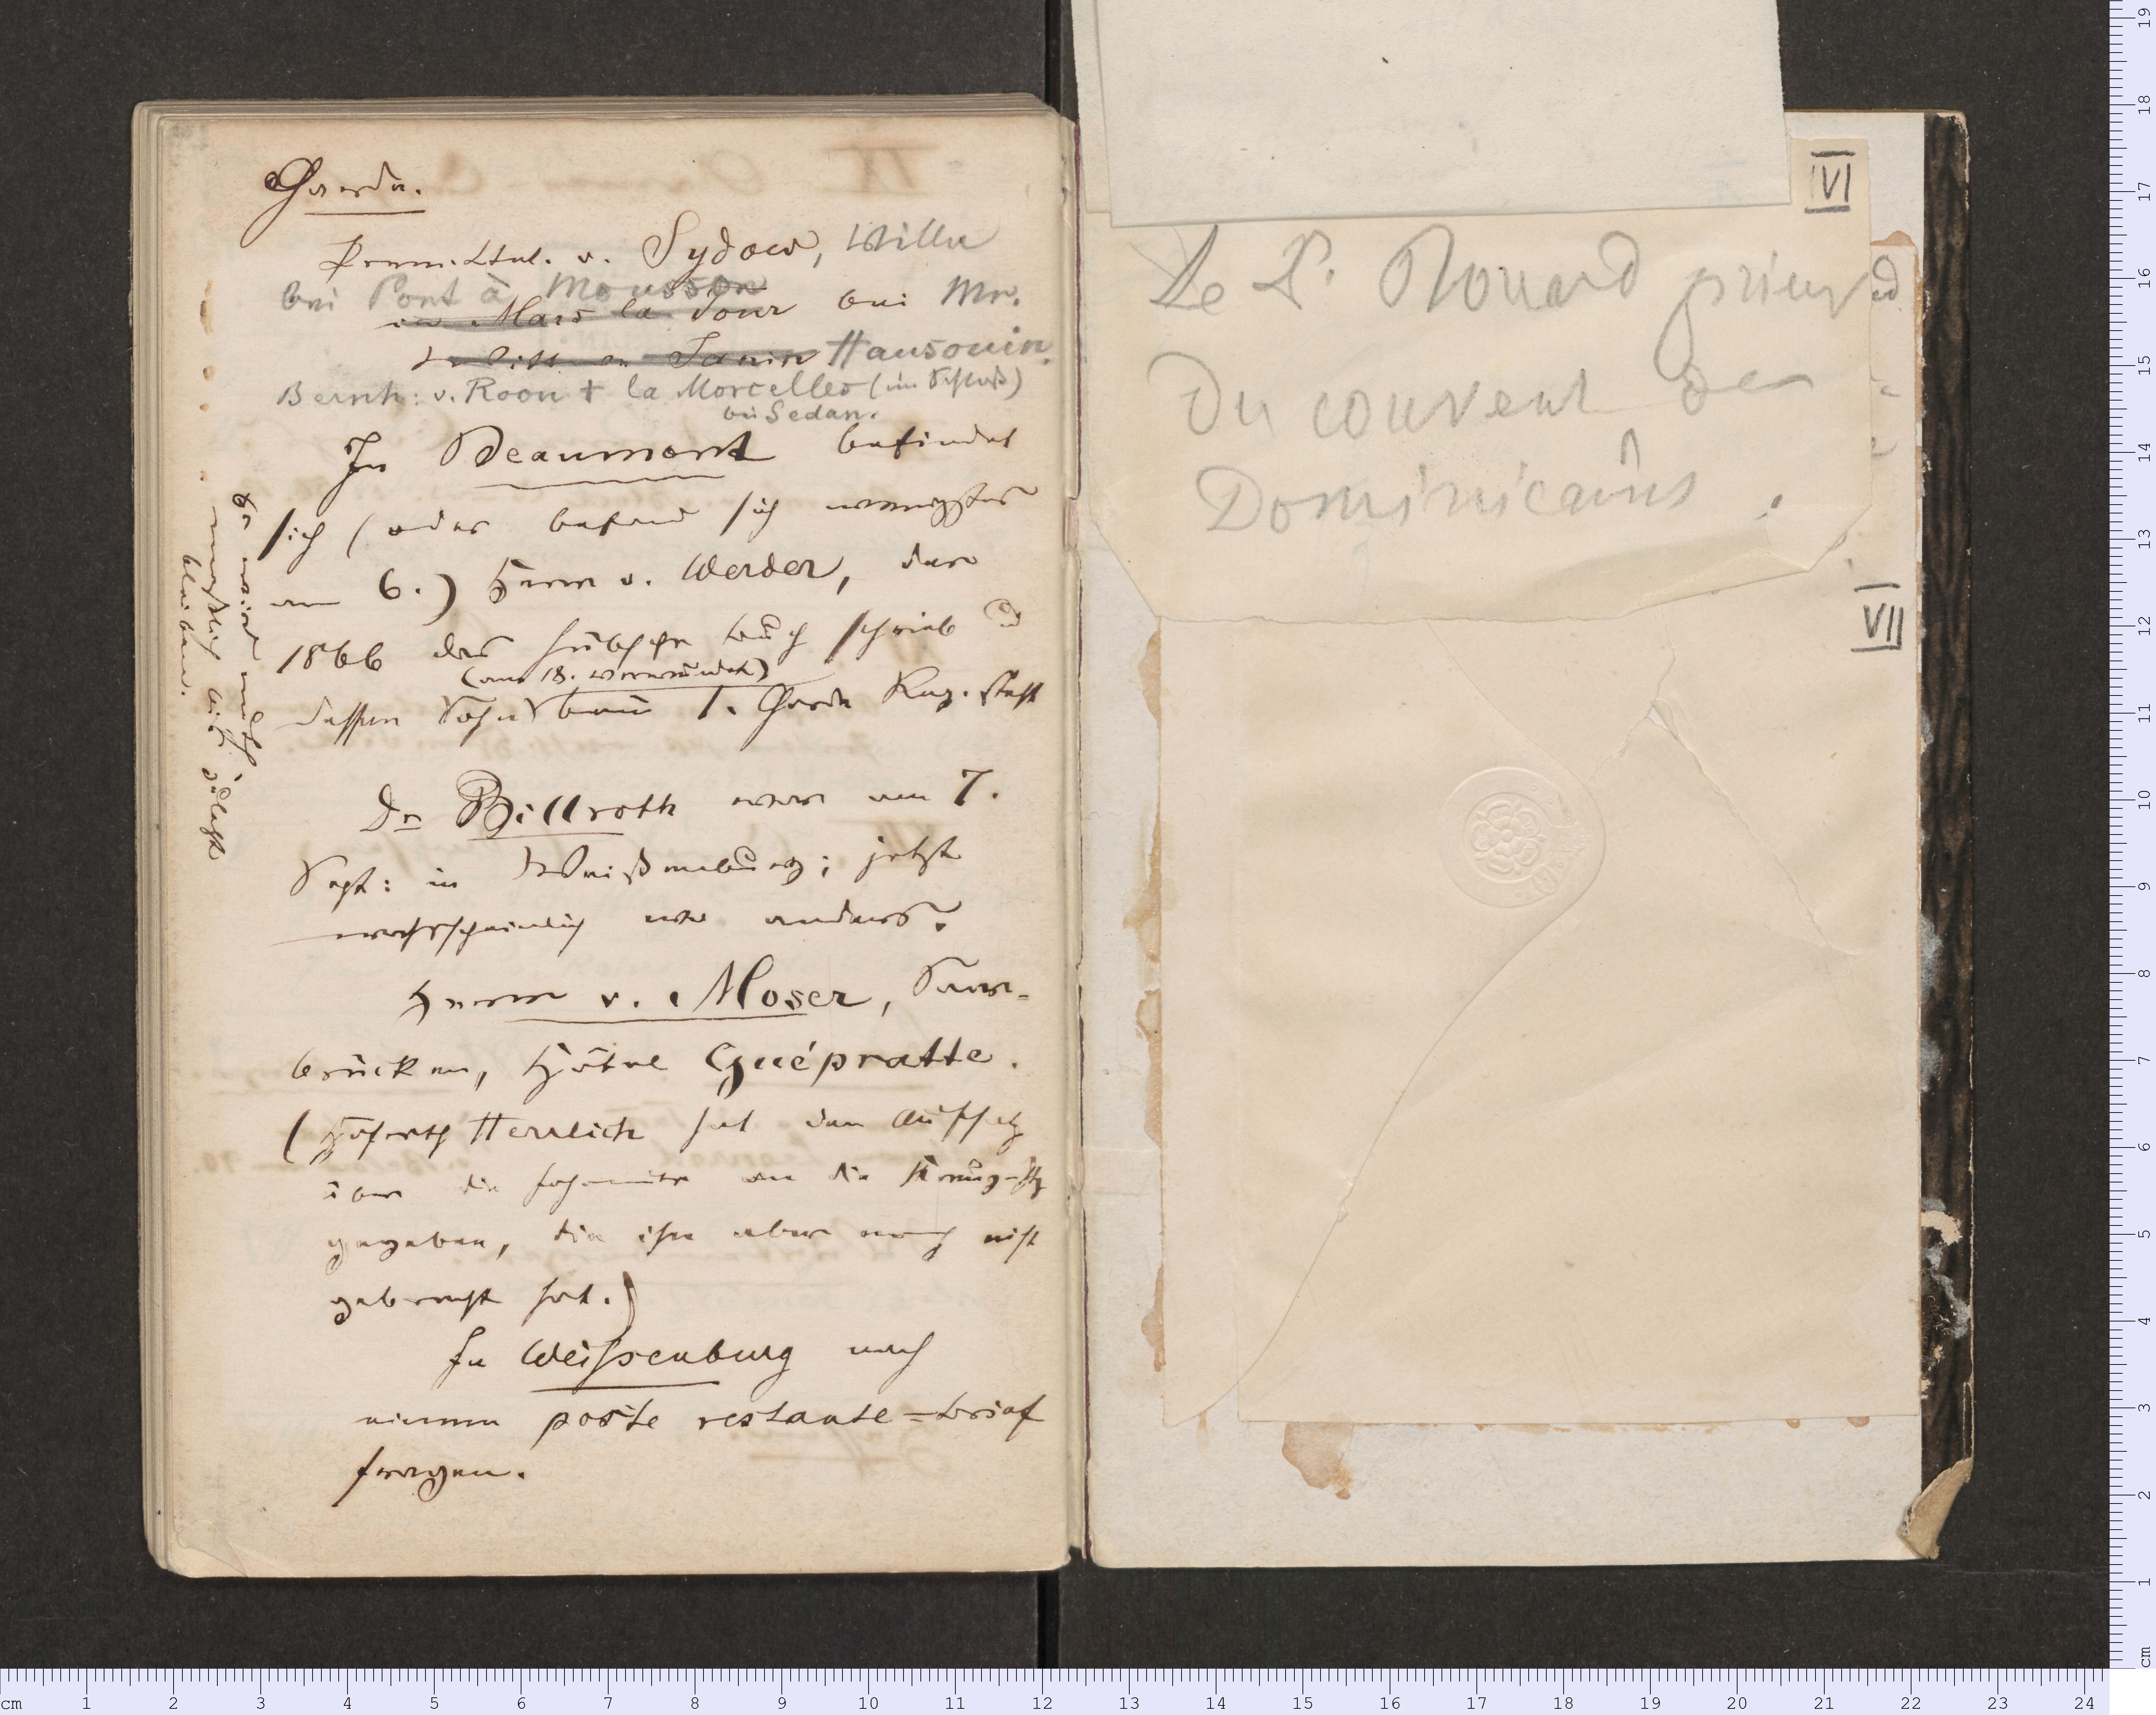 Garde.
Premierltnt. v. Sydow, Wille
bei Pont à Mousson
in Mars la Tour bei Mr.
Hausouin.
Bernh: v. Roon † la Morcelles (im Schloß)
bei Sedan.
In Beaumont befindet
sich (oder befand sich wenigstens
am 6.) Herr v. Werder, der
1866 das hübsche Buch schrieb u
(am 18. verwundet)
dessen Sohn beim 1. Garde Reg. steht
Er wird
bleiben.
Dr Billroth war am 7.
Sept: in Weißenburg; jetzt
wahrscheinlich wo anders.
Herr v. Moser, Saar-
brücken, Hôtel Guépratte.
(Hofrath Herrlich hat den Aufsatz
über die Johanniter an die Kreuz-Ztg
gegeben, die ihn aber noch nicht
gebracht hat.)
In Weissenburg nach
einem poste restante=Brief
fragen.
VI
Le P. Rouard prieur
du couvent des
Dominicains.
VII